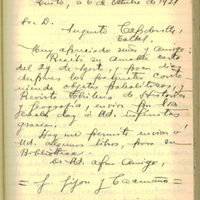 Quito, a 6 de Octubre de 1921
Sr. D.
Augusto Capdeville,
Taltal.
Muy apreciado señor y amigo:
Recibí su amable carta
del 29 de Agosto, y pocos días
después los paquetes conte
niendo objetos paleolíticos y
Revista Chilena de Historia
y Geografía, envíos por los
cuales doy a Ud. infinitas
gracias.
Hoy me permito enviar a
Ud. algunos libros, para su
Biblioteca.
De Ud. afmo. amigo,
J. Jijón y Caamaño